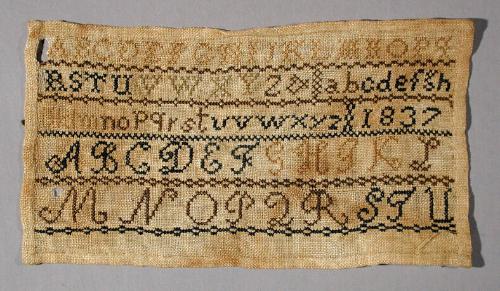 ABCDEFGHIKL MNOPQ
RSTUVWXYZ& abcdefgh
lmnopqrstuvwxyz 1837
ABCDEFGHIKL
MNOPQRSTU